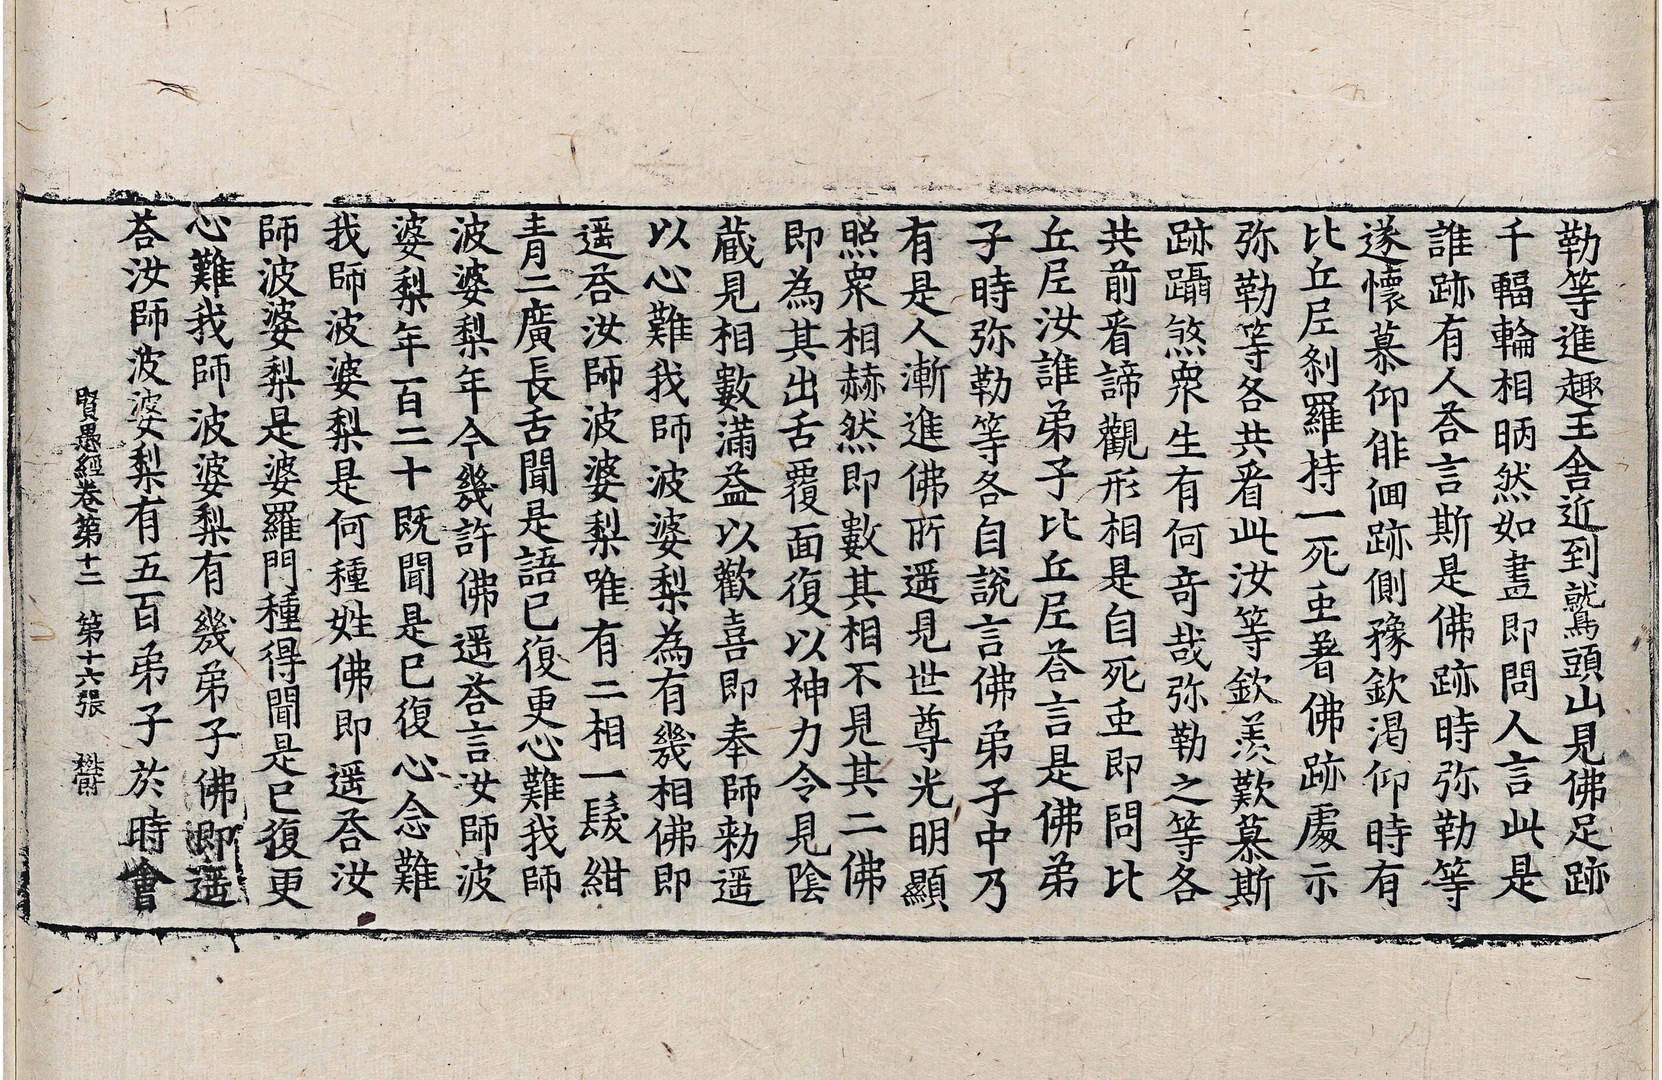 勒等進趣王舍近到鷲頭山見佛足跡
千輻輪相昞然如畫即問人言此是
誰跡有人荅言斯是佛跡時弥勒等
遂懷慕仰俳佪跡側豫欽渴仰時有
比丘尼刹羅持一死䖝著佛跡處示
弥勒等各共㸔此汝等欽羡歎慕斯
跡躡煞衆生有何奇哉弥勒之等各
共前㸔諦觀形相是自死䖝即問比
丘尼汝誰弟子比丘尼荅言是佛弟
子時弥勒等各自說言佛弟子中乃
有是人漸進佛所遥見世尊光明顯
照衆相赫然即數其相不見其二佛
即為其出舌覆面復以神力令見陰
蔵見相數滿益以歡喜即奉師勑遥
以心難我師波婆梨為有幾相佛即
遥荅汝師波婆梨唯有二相一髮紺
青二廣長舌聞是語已復更心難我師
波婆梨年今幾許佛遥荅言汝師波
婆梨年百二十既聞是已復心念難
我師波婆梨是何種姓佛即遥荅汝
師波婆梨是婆羅門種得聞是已復更
心難我師波婆梨有幾弟子佛即遥
荅汝師波婆梨有五百弟子於時會
賢愚經卷第十二 第十六張